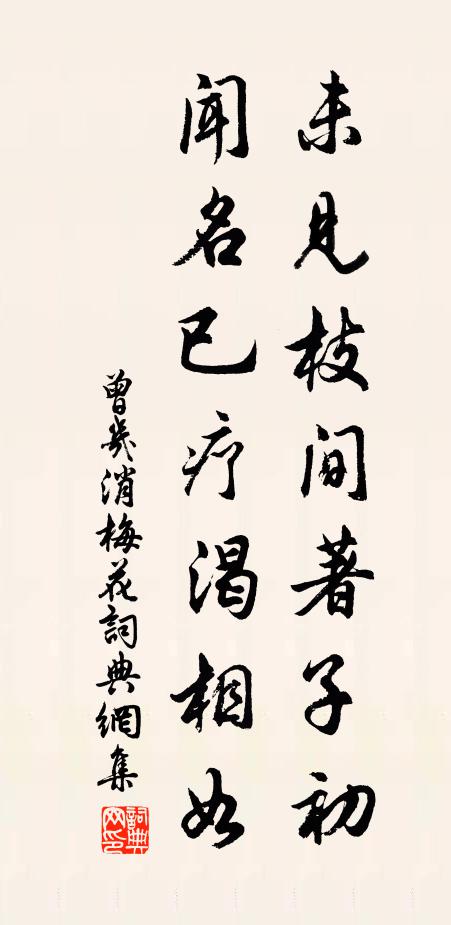 未見枝間著子初
聞名已疗渴相如
曾幾消梅花詞典網集
詞典网印